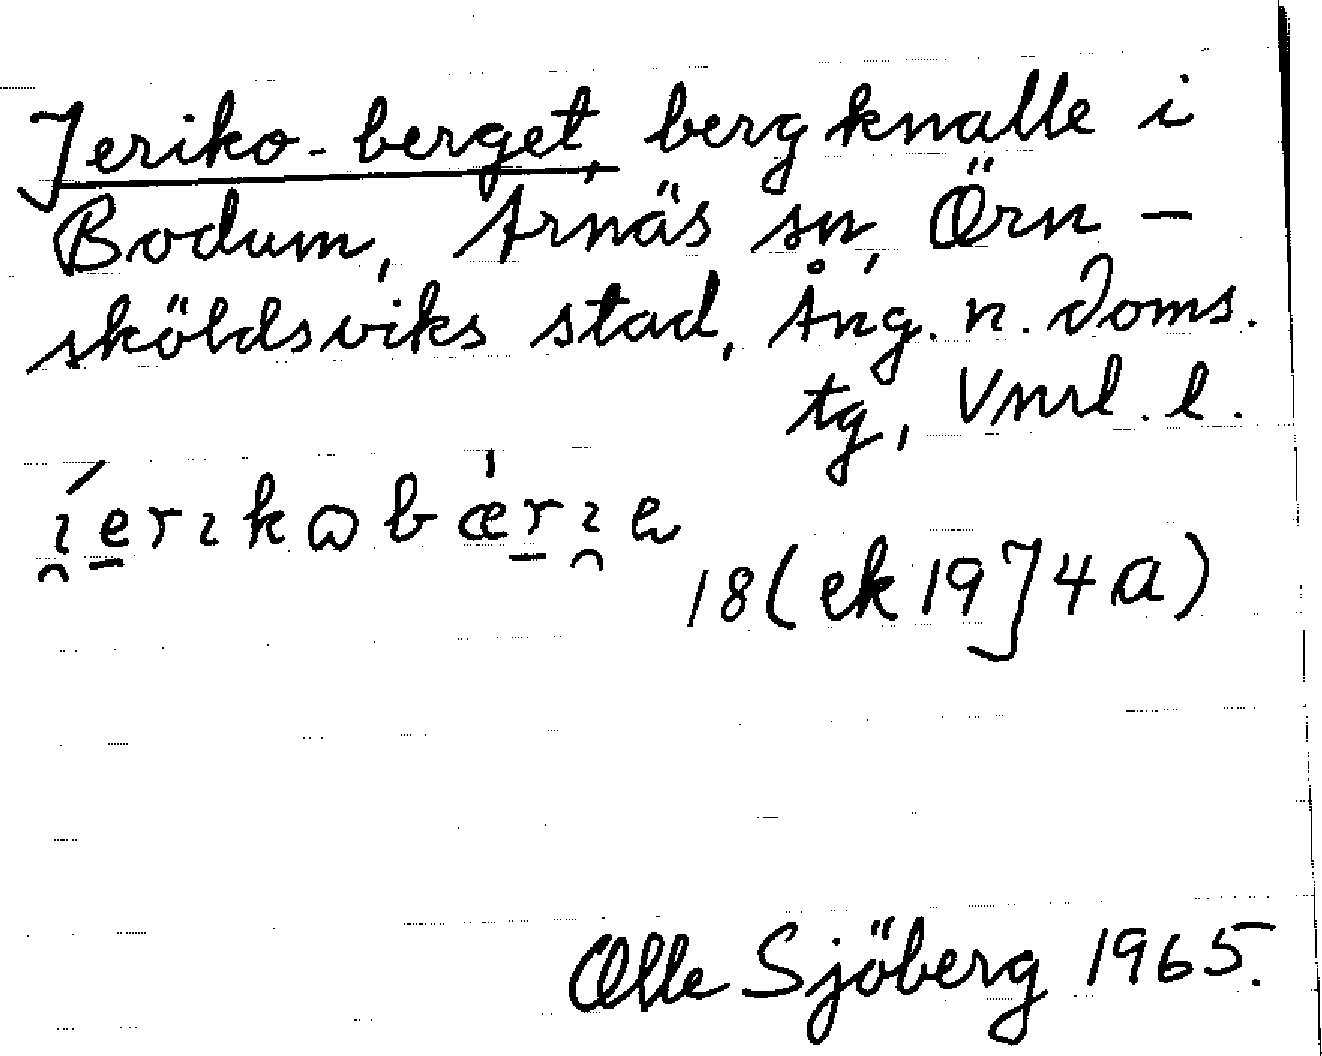 Jeriko-berget, bergknalle i
Bodum, Arnäs sn, Örn-
sköldsviks stad, Ång. n. doms.
tg, Vnrl. l.
18(ek 1974a)
Olle Sjöberg 1965.